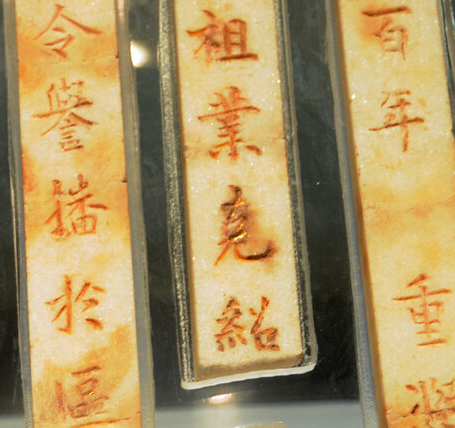 百年 重
祖業克紹
令譽播於